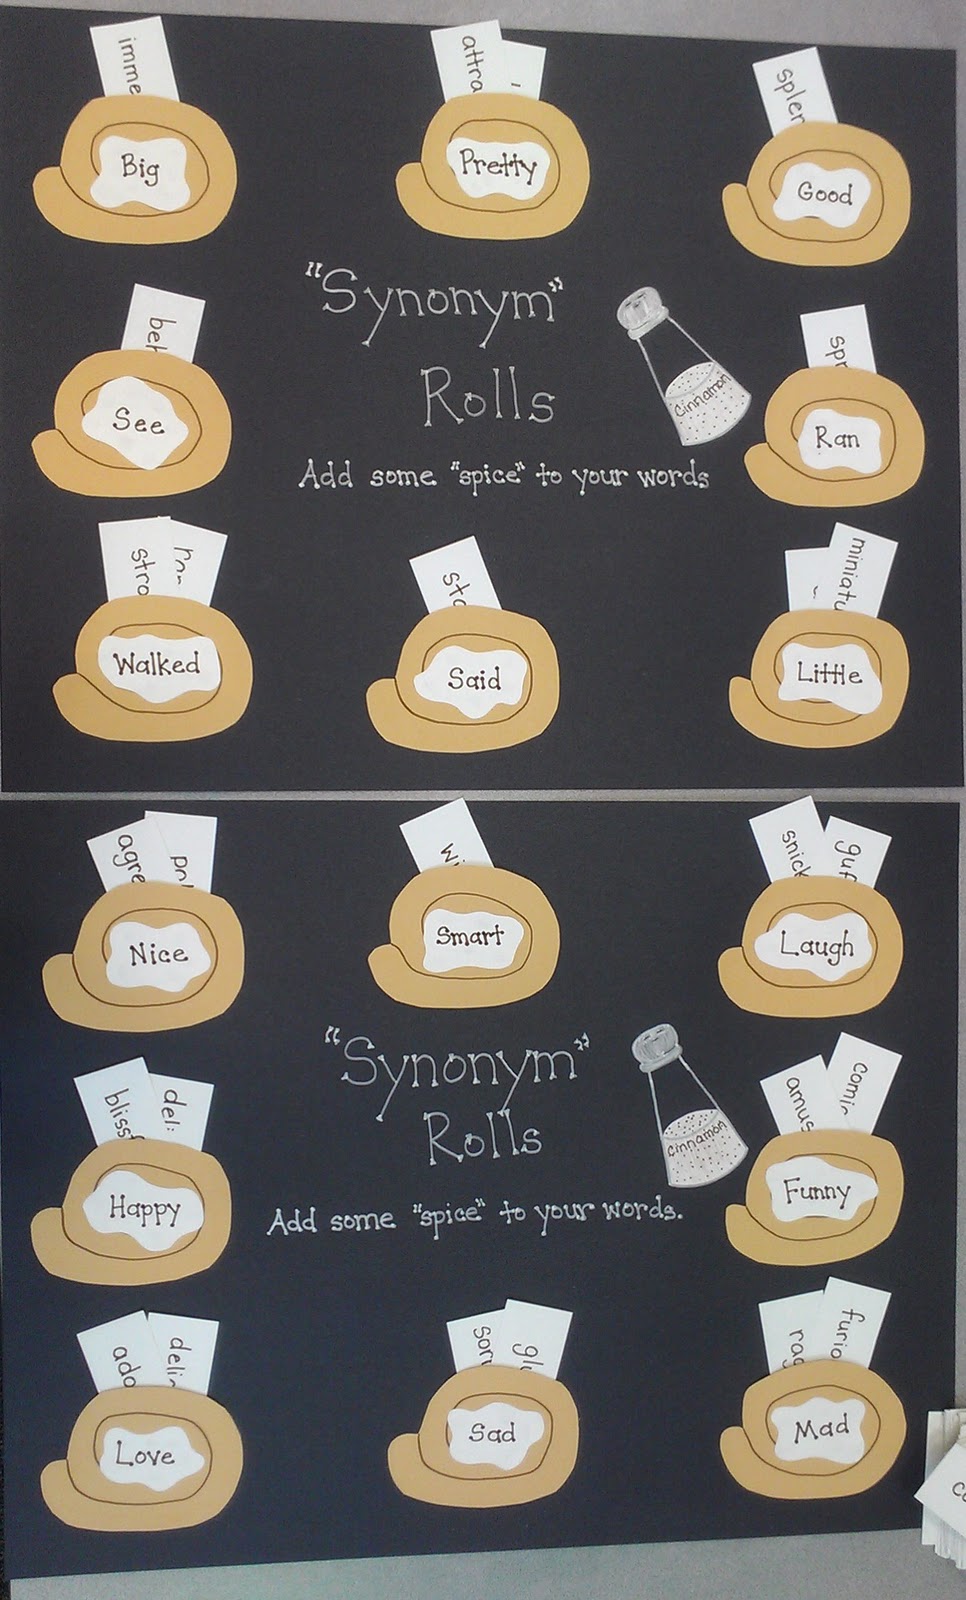 imme
attra
splen
Big
Pretty
Good
"Synonym"
Rolls
Cinnamon
Add some "spice" to your words
beh
See
spr
Ran
stro
Walked
sta
Said
miniatu
Little
agre
Nice
wi
Smart
snick
guf
Laugh
"Synonym"
Rolls
Cinnamon
Add some "spice" to your words.
bliss
deli
Happy
amus
comi
Funny
ado
deli
Love
sorr
gl
Sad
rag
furio
Mad